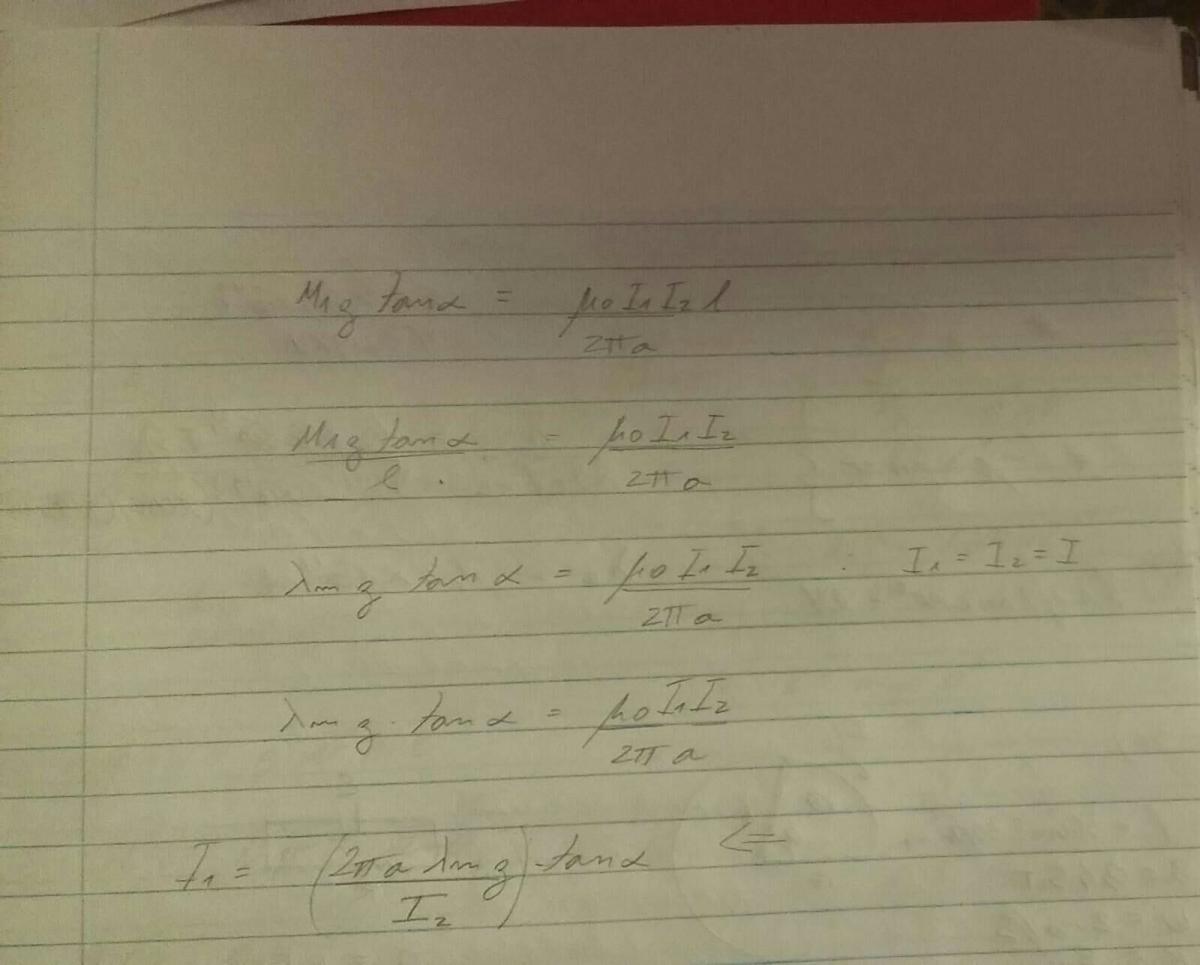 M₁g tanα = μ₀I₁I₂l / 2πa
M₁g tanα / l . = μ₀I₁I₂ / 2πa
λm g tanα = μ₀I₁I₂ / 2πa : I₁ = I₂ = I
λm g · tanα = μ₀I₁I₂ / 2πa
I₁ = (2πa λm g / I₂) · tanα <=